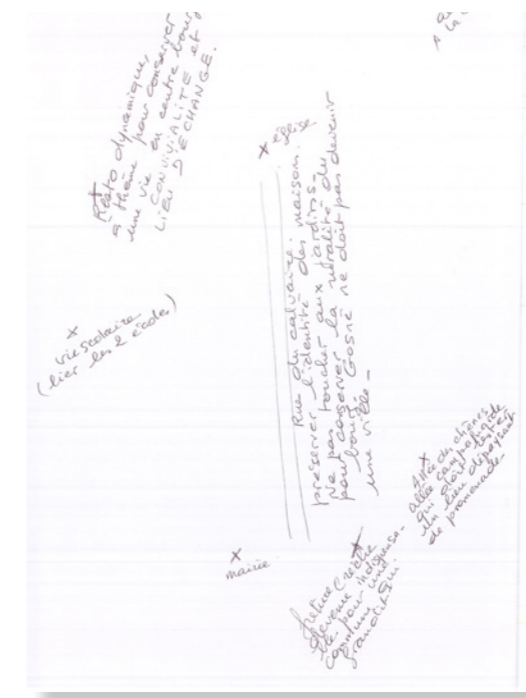 Resto dynamique,
à thème pour conserver
une vie en centre bourg
CONVIVIALITE et
LIEU D'ECHANGE.
la
église
Rue du calvaire.
préserver l'identité des maisons.
Ne pas toucher aux jardins -
pour conserver la ruralité du
bourg. Gosné ne doit pas devenir
une ville -
vie scolaire
(lier les 2 écoles)
Allée des chênes
allée campagnarde
qui doit rester
un lieu dépaysant
de promenade
mairie
future crèche
devenue indispensa-
ble pour une
commune qui
grandit